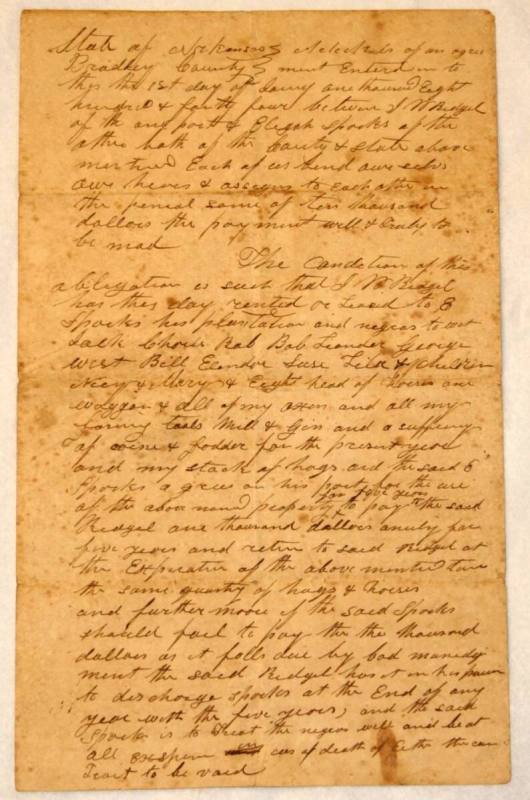 State of Arkansas } Articles of an agree
Bradley County } ment Enterd in to
this the 1st day of Janry one thousand Eight
hundred & forty four between J W Ridgel
of the one part & Elijah Sparks of the
other both of the County & State above
mentined Each of us bind our selvs
our heires & assigns to Each other in
the penial some of Ten thousand
dollars the payment will & truly to
be mad
The Condition of this
obligation is such that J W Ridgel
has this day rented or Leased to E
Sparks his plantation and negros to wit
Jack Bob Leander George
West Bill Elendor Suse & Children
& Mary & Eight head of horses one
waggon & all of my oxen and all my
farming tools Mill & Gin and a
of corne & fodder for the present year
and my stock of hogs and the said E
Sparks a grees on his part for the use
for five years
of the above named property to pay the said
Ridgel one thousand dollars anuly for
five years and return to said Ridgel at
the Experation of the above mentined time
the same quanty of hogs & horses
and further more if the said Sparks
should fail to pay the the thousand
dollars as it falls due by bad manedg
ment the said Ridgel has it in his power
to discharge Sparks at the End of any
year with the five years, and the said
Sparks is to treat the negros well and be at
all in cas of death of Eithe the con
tract to be void